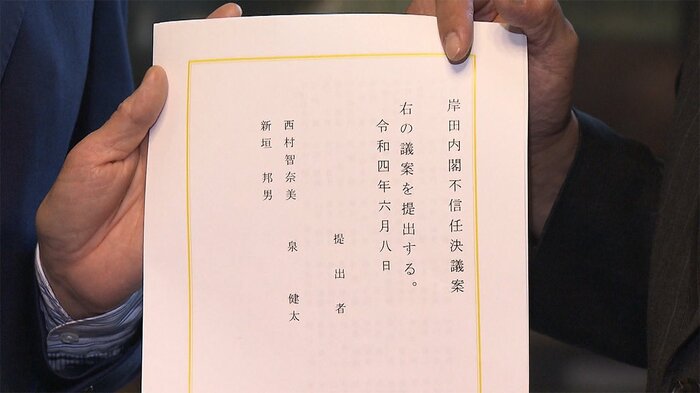 岸田内閣不信任決議案
右の議案を提出する。
令和四年六月八日
提出者
西村智奈美 泉 健太
新垣 邦男